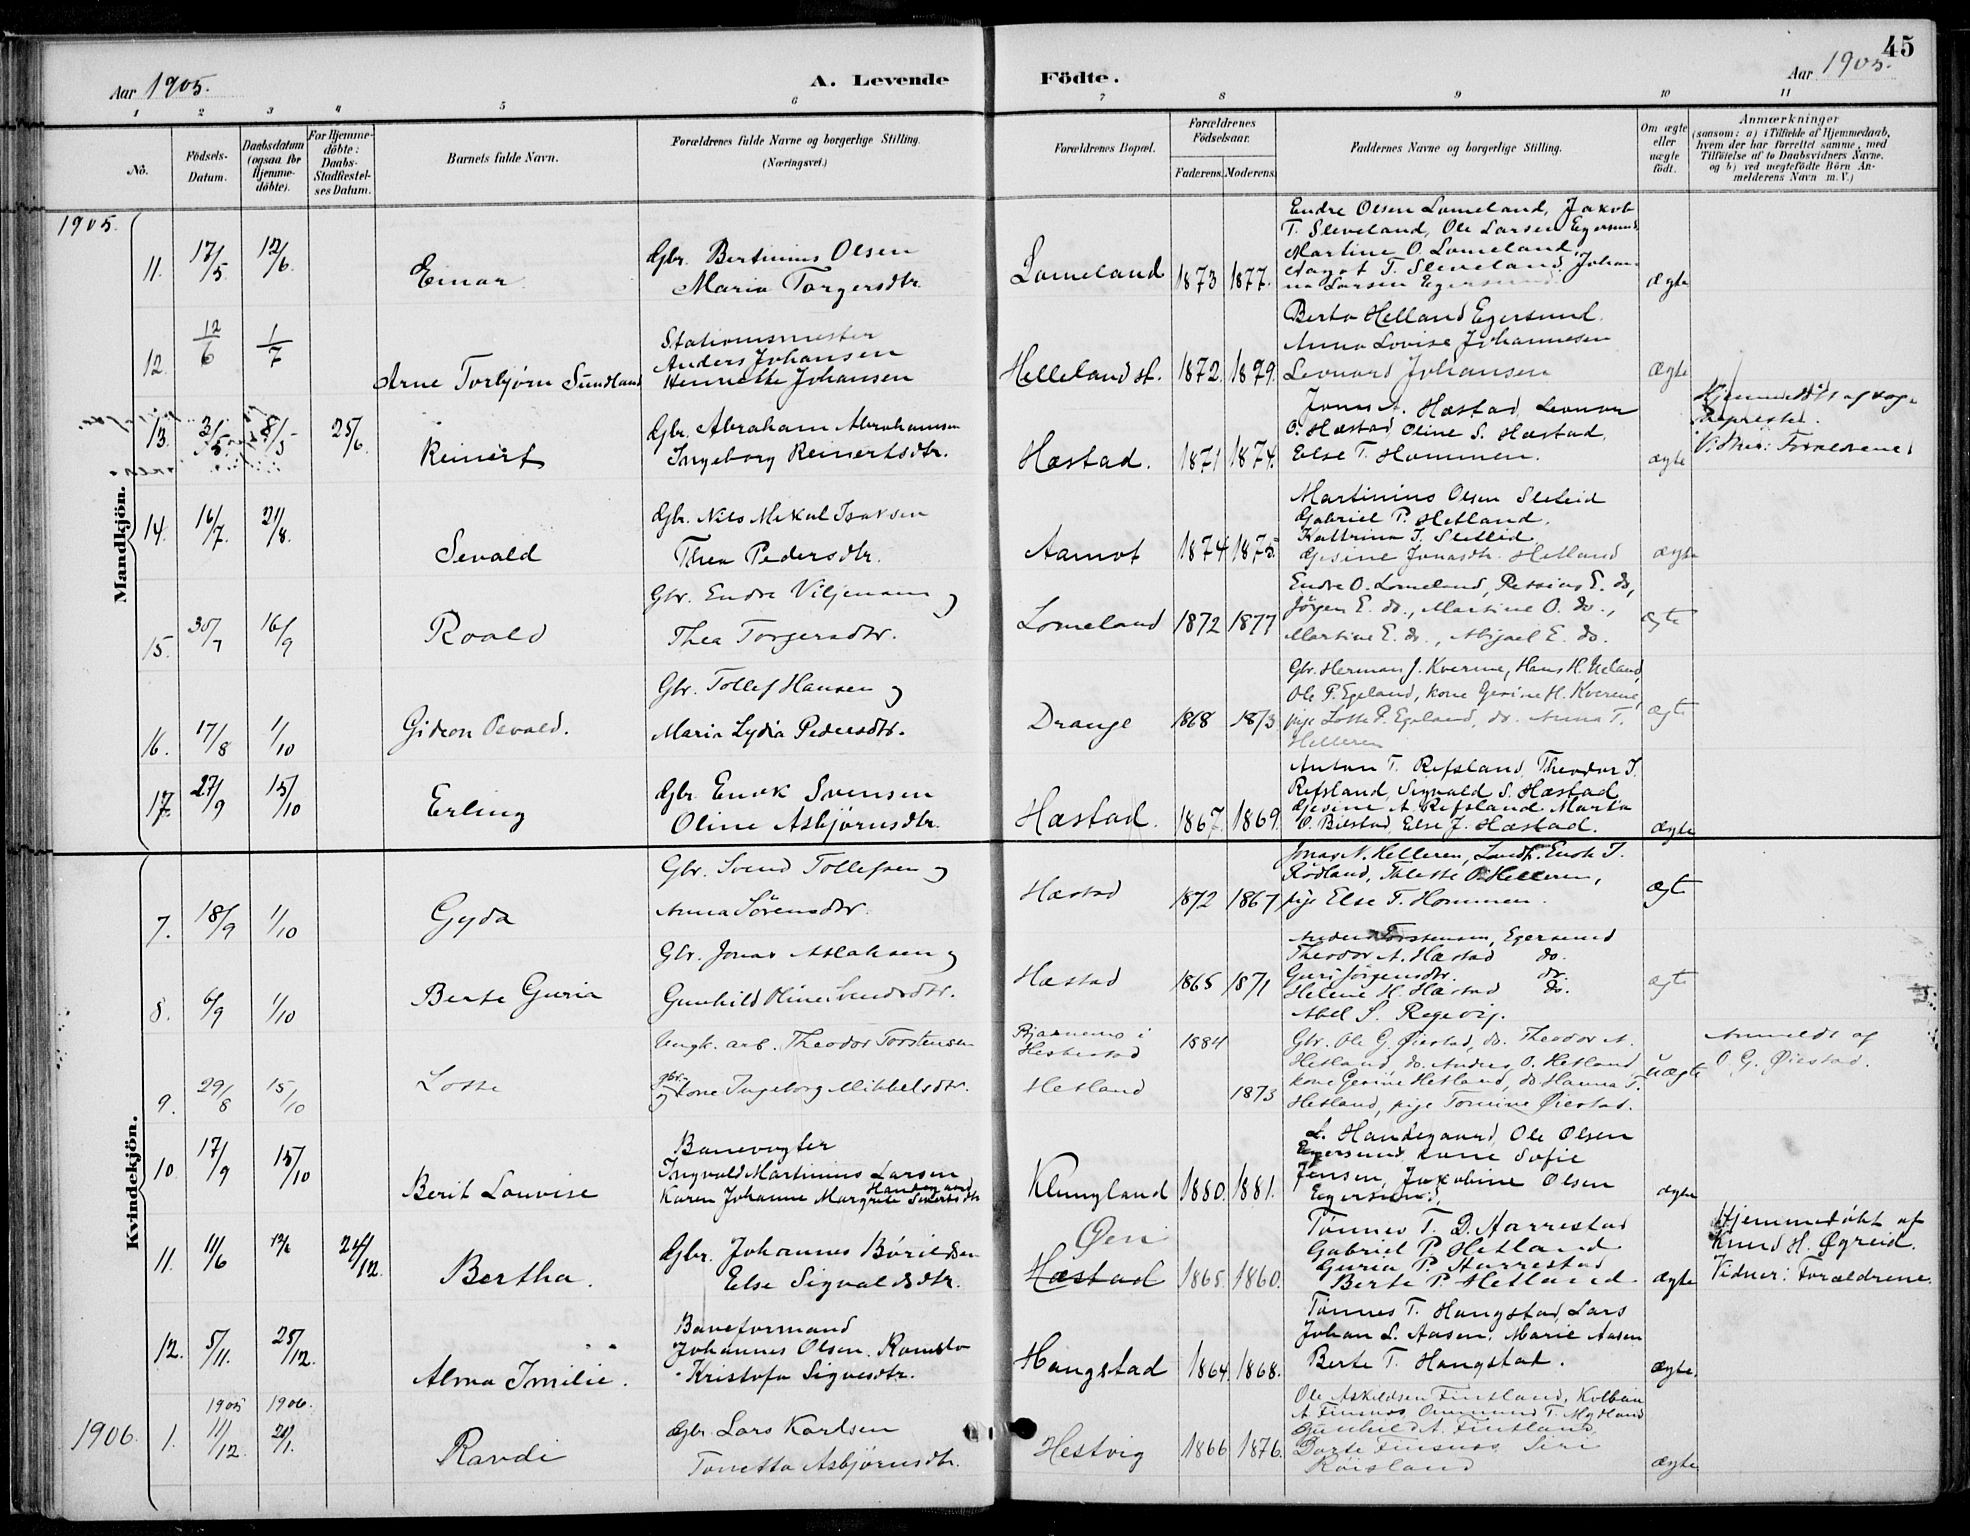 45
Aar 1905.
A. Levende Födte.
Aar 1905.
1 2 3 4 5 6 7 8 9 10 11
No.
Födsels-Datum.
Daabsdatum (ogsaa for Hjemmedöbte).
For Hjemmedöbte: Daabs-Stadfæstelses Datum.
Barnets fulde Navn.
Forældrenes fulde Navne og borgerlige Stilling.
(Næringsvei.)
Forældrenes Bopæl.
Forældrenes Födselsaar.
Faderens. Moderens.
Faddernes Navne og borgerlige Stilling.
Om ægte eller uægte födt.
Anmærkninger
(saasom: a) i Tilfælde af Hjemmedaab, hvem der har forrettet samme, med Tilföielse af to Daabsvidners Navne, og b) ved uægtefödte Börn Anmelderens Navn m. V.)
1905.
Mandkjön.
11. 17/5 12/6 Einar
Gbr. Bertinius Olsen
Maria Torgersdtr.
Lomeland 1873 1877.
Endre Olsen Lomeland, Jakob
T. Sleveland, Ole Larsen Egersund
Martine O. Lomeland,
T. Sleveland, Johan
na Larsen Egersund
ægte
12. 12/6 1/7 Arne Torbjørn Sundland
Stationsmester
Anders Johansen
Henriette Johansen
Helleland st. 1872. 1879.
Berta Helland Egersund.
Anna Lovise Johannesen
Leonard Johansen
ægte
13. 3/5 8/5 25/6 Reinert
Gbr. Abraham Abrahamsen
Ingeborg Reinertsdtr.
Hæstad. 1871 1874.
Jonas A. Hæstad,
O. Hæstad, Oline S. Hæstad,
Else T. Hommen.
ægte
Hjemmedøbt af sogneprest
Vidner: Forældrene
14. 16/7. 21/8. Sevald
Gbr. Nils Mikal Isaksen
Thea Pedersdtr.
Aamot 1874 1875
Martinius Olsen Sleteid
Gabriel P. Hetland.
Kathrina T. Sletteid
Gesine Jonasdtr. Hetland
ægte
15. 30/7 16/9 Roald
Gbr. Endre Viljemsen og
Thea Torgersdtr.
Lomeland 1872 1877
Endre O. Lomeland, E. do,
Jörgen E. do., Martine O. do.,
Martine E. do., Abigael E. do.
ægte
16. 17/8 1/10 Gideon Osvald.
Gbr. Tollef Hansen og
Maria Lydia Pedersdtr.
Drange 1868 1873
Gbr. Herman J. Kverme, Hans H. Ueland,
Ole P. Egeland, kone Gesine H. Kverme,
pige Lotte P. Egeland, do. Anna T.
Helleren
ægte
17. 27/9 15/10 Erling
Gbr. Enok Svensen
Oline Asbjørnsdtr.
Hæstad. 1867. 1869.
Anton T. Refsland, Theodor T.
Refsland, Sigvald S. Hæstad,
Gesine A. Refsland, Marta
O. Bilstad, Else J. Hæstad.
ægte
Kvindekjön.
7. 18/9 1/10 Gyda
Gbr. Svend Tollefsen og
Anna Sörensdtr.
Hæstad 1872 1867
Jonas N. Helleren, Enok T.
Rödland, Helleren,
pige Else T. Hommen.
ægte
8. 6/9 1/10 Berte Guria
Gbr. Jonas Aslaksen og
Gunhild Oline Svendsdtr.
Hæstad 1865 1871
Anders Torstensen, Egersund
Theodor A. Hæstad do.
Guri Jörgensdtr. do.
Helene H. Hæstad do.
Abel S. Regevig.
ægte
9. 29/8 15/10 Lotte
Ungk. arb. Theodor Torstensen
og gbr. kone Ingeborg Mikkelsdtr.
Bjørnemo i
Hestestad 1884
Hetland 1873
Gbr. Ole G. Öiestad, do. Theodor A.
Hetland, do. Andreas O. Hetland
kone Gesine Hetland, do. Hanna T.
Hetland, pige Tomine Öiestad.
uægte
Anmeldt af
O. G. Öiestad.
10. 17/9 15/10 Berit Louvise
Banevogter
Ingvald Martinius Larsen
Handegaard
Karen Johanne Margrete Sivertsdtr
Klungland 1880. 1881.
L. Handegaard, Ole Olsen
Egersund, kone Sofie
Jensen, Jakobine Olsen
Egersund,
ægte
11. 11/6 12/6 24/12 Bertha.
Gbr. Johannes Börildsen
Else Sigvaldsdtr.
Øen
Hæstad 1865. 1860.
Tønnes T. D. Aarrestad
Gabriel P. Hetland
Guria P. Aarrestad
Berte P. Hetland
ægte
Hjemmedøbt af
Knud H. Øgreid.
Vidner: Forældrene.
12. 5/11. 25/12. Alma Emilie.
Baneformand
Johannes Olsen Ramslo
Kristofa Sigvesdtr.
Hangstad 1864. 1868.
Tønnes T. Hangstad, Lars
Johan L. Aasen, Marie Aasen
Berte T. Hangstad.
ægte.
1906.
1905 1906.
1. 11/12 21/1. Randi
Gbr. Lars Karlsen
Tonetta Asbjørnsdtr.
Hestvig 1866 1876.
Ole Askildsen Fintland, Kolbein
A. Finsnes Ommund T. Mydland
Gunhild A. Fintland,
Dorte Finsnes Siri
Röisland
ægte